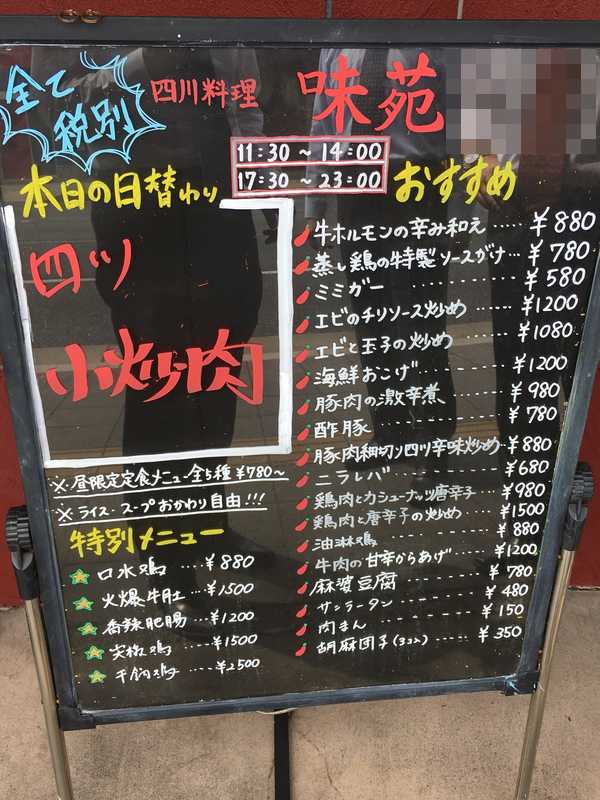 全て
税別
四川料理 味苑
11:30 ~ 14:00
17:30 ~ 23:00
本日の日替わり
四ツ
小炒肉
※昼限定定食メニュー全5種 ¥780~
※ライス・スープおかわり自由!!!
特別メニュー
口水鶏 ････ ¥880
火爆牛肚 ････ ¥1500
香辣肥腸 ････ ¥1200
尖椒鶏 ････ ¥1500
干鍋鶏 ････ ¥2500
おすすめ
牛ホルモンの辛み和え ････ ¥880
蒸し鶏の特製ソースがけ ･･･ ¥780
ミミガー ････････ ¥580
エビのチリソース炒め ････ ¥1200
エビと玉子の炒め ････ ¥1080
海鮮おこげ ････････ ¥1200
豚肉の激辛煮 ････････ ¥980
酢豚 ････････････ ¥780
豚肉細切り四ツ辛味炒め ･･･ ¥880
ニラレバ ････････････ ¥680
鶏肉とカシューナッツ唐辛子 ･･･ ¥980
鶏肉と唐辛子の炒め ････ ¥1500
油淋鶏 ････････････ ¥880
牛肉の甘辛からあげ ････ ¥1200
麻婆豆腐 ････････ ¥780
サンラータン ････････ ¥480
肉まん ････････････ ¥150
胡麻団子(3コ入) ････････ ¥350